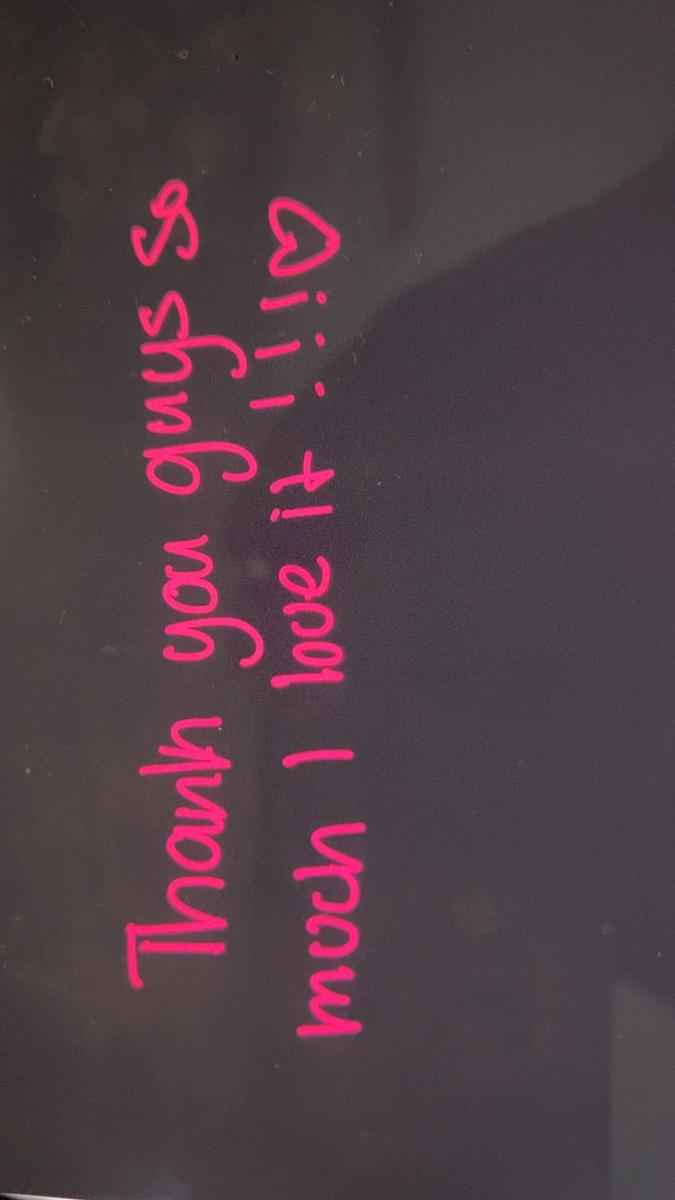 Thank you guys so
much I love it !!!♡